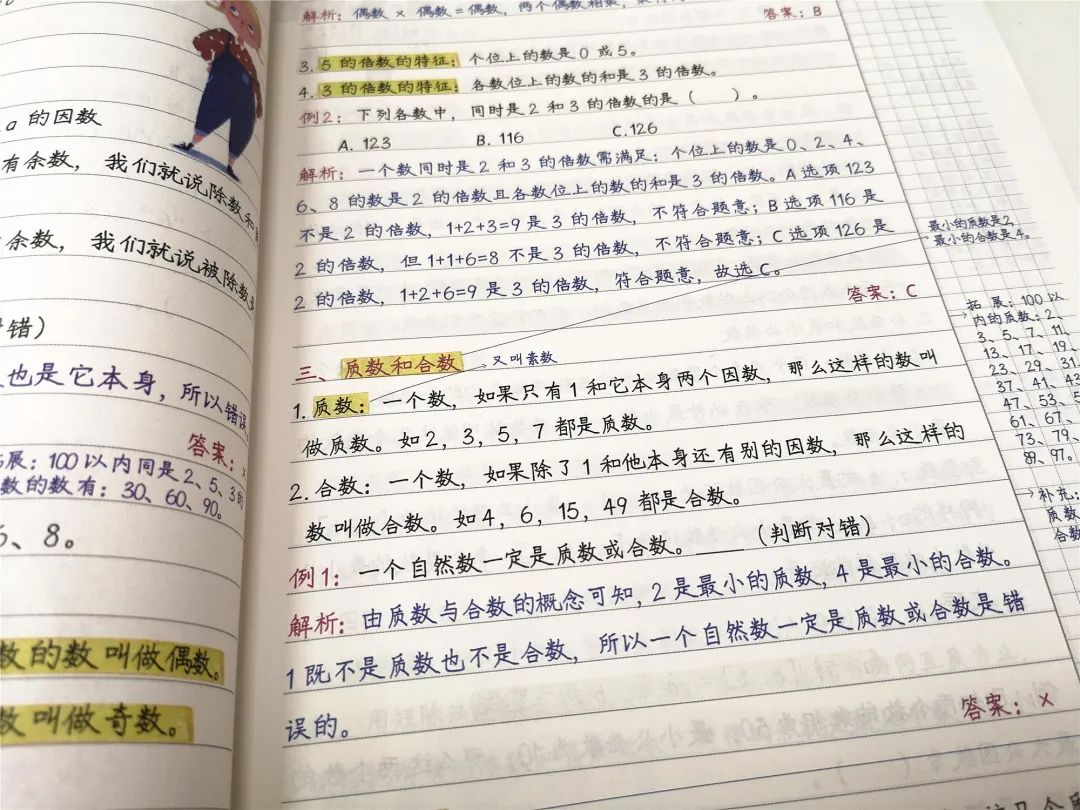 a 的因数
有余数，我们就说除数和
余数，我们就说被除数
错）
也是它本身，所以错误
答案：×
展：100以内同是2、5、3的
数的数有：30、60、90。
6、8。
数的数叫做偶数。
数叫做奇数。
解析：偶数 × 偶数＝偶数，两个偶数相乘，
答案：B
3. 5 的倍数的特征：个位上的数是 0 或 5。
4. 3 的倍数的特征：各数位上的数的和是 3 的倍数。
例2：下列各数中，同时是 2 和 3 的倍数的是（　）。
A. 123　B. 116　C.126
解析：一个数同时是 2 和 3 的倍数需满足：个位上的数是 0、2、4、
6、8 的数是 2 的倍数且各数位上的数的和是 3 的倍数。A 选项 123
不是 2 的倍数，1+2+3=9 是 3 的倍数，不符合题意；B 选项 116 是
2 的倍数，但 1+1+6=8 不是 3 的倍数，不符合题意；C 选项 126 是
2 的倍数，1+2+6=9 是 3 的倍数，符合题意，故选 C。
答案：C
三、质数和合数 又叫素数
1. 质数：一个数，如果只有 1 和它本身两个因数，那么这样的数叫
做质数。如 2，3，5，7 都是质数。
2. 合数：一个数，如果除了 1 和他本身还有别的因数，那么这样的
数叫做合数。如 4，6，15，49 都是合数。
例1：一个自然数一定是质数或合数。____（判断对错）
解析：由质数与合数的概念可知，2 是最小的质数，4 是最小的合数。
1 既不是质数也不是合数，所以一个自然数一定是质数或合数是错
误的。
答案：×
最小的质数是2，
最小的合数是4。
拓展：100 以
内的质数：2、
3、5、7、11、
13、17、19、
23、29、31、
37、41、43
47、53、5
61、67、
73、79、
89、97。
补充：
质数
合数